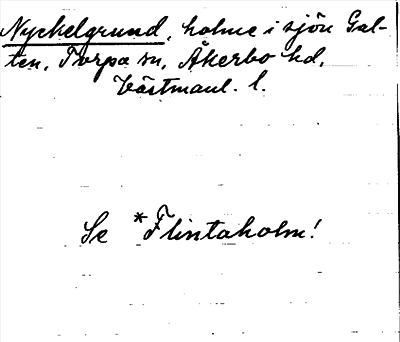 Nyckelgrund, holme i sjön Gal-
ten, Torpa sn, Åkerbo hd,
Västmanl. l.
Se *Flintaholm!